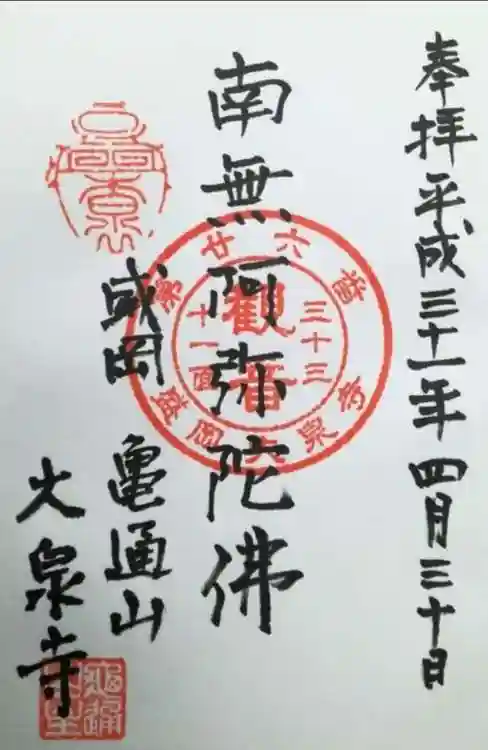 奉拝 平成三十一年四月三十日
南無阿弥陀佛
盛岡 亀通山
大泉寺
第廿六番
三十三
観音
十一面
盛岡大泉寺